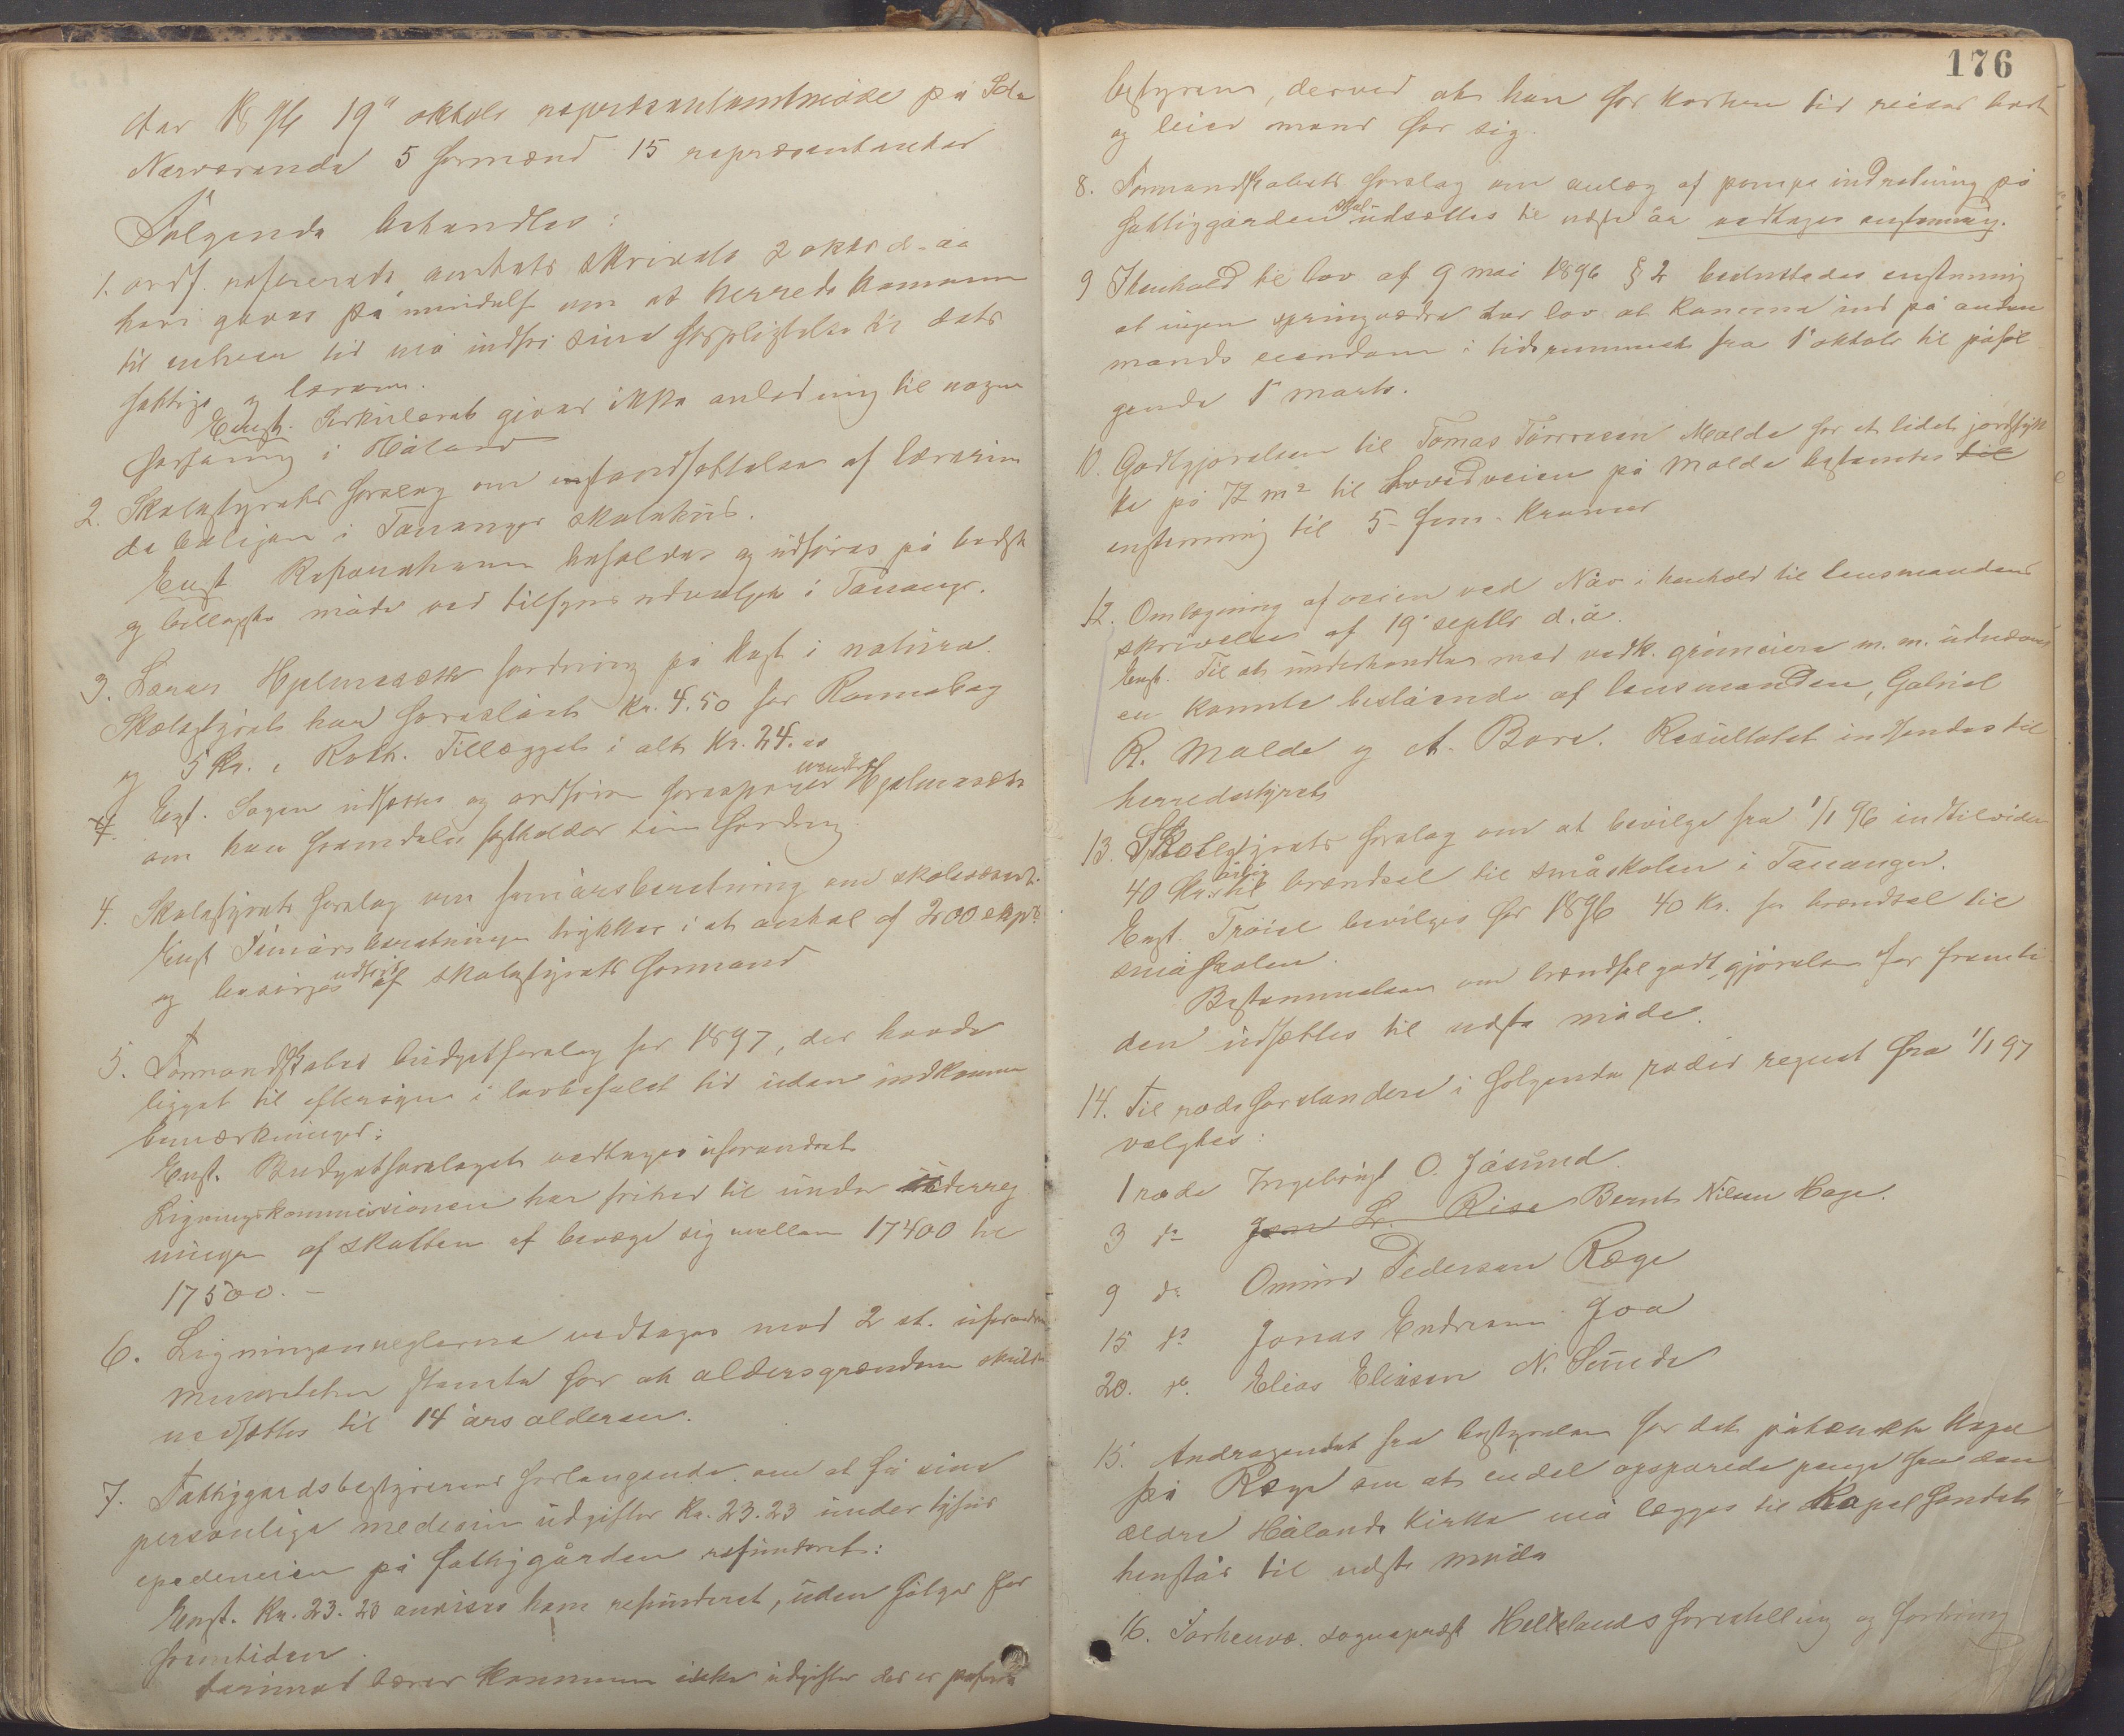 År 1896 19' oktobr representantmøde på Sole
Nærværende 5 formænd 15 repræsentanter
Følgende behandles:
1. ordf. refererede amtets skrivelse 2 oktbr d. aa
hvori gives påmindelse om at herreds kommunen
til enhver tid må indfri sine forpligtelse til dets
fattige og lærere.
Enst. Sirkuleret giver ikke anledning til nogen
forføining i Håland
2. Skolestyrets forslag om istandsættelsen af lærerin
de boligen i Tananger skolehus.
Enst Reperationen anbefales og udføres på bedste
og billigste måde ved tilsynsudvalget i Tananger.
3. Lærer Hjelmesæth fordring på kost i natura.
Skolestyret har foreslået Kr. 4.50 for Rannabeg
og 5 Kr. i Roth. Tillægget i alt Kr. 24.00
Enst. Sagen udsættes og ordføreren forespørger Hjelmesæth
om han fremdeles fastholder sin fordring
4. Skolestyrets forslag om femårsberetning om skolevæsenet.
Enst Femårsberetningen trykkes i et antal af 200 expl.
og besørges udført af skolestyrets formand
5. Formandskabets budgetforslag for 1897, der havde
ligget til eftersyn i lovbefalet tid uden indkomne
bemærkninger:
Enst. Budgetforslaget vedtages uforandret
Ligningskommissionen har frihed til under uderreg
ningen af skatten at bevæge sig mellem 17400 til
17500.-
6. Ligningsreglerne vedtages mod 2 st. uforandret
Minoriteten stemte for at aldersgrændsen skulde
nedsættes til 14 års alderen.
7. Fattiggardsbestyrerens forlangende om at få sine
personlige medicin udgifter Kr. 23.23 under tyfus
epedemien på fattiggården refunderet:
Enst. Kr. 23.23 anvises ham refunderet, uden følger for
fremtiden.
derimod bærer kommunen ikke udgifter der er påført
176
bestyreren, derved at han for kortere tid reiser bort
og leier mand for sig.
8. Formandskabets forslag om anlæg af pumpe indretning på
fattiggården skal udsættes til næste år vedtages enstemmig.
9 I henhold til lov af 9 mai 1896 § 2 besluttedes enstemmig
at ingen springvædre har lov at komme ind på anden
mands eiendom i tidsrummet fra 1' oktobr til påføl
gende 1' marts.
10. Godtgjørelsen til Tomas Tørresen Malde for et lidet jordstyk
ke på 72 m² til hovedveien på Malde bestemtes til
enstemmig til 5 - fem - kroner
12. Omlægning af veien ved Når i henhold til lensmandens
skrivelse af 19' septbr d. å.
Enst. Til at underhandle med vedk. grundeiere m. m. udnævnes
en komite bestående af lensmanden, Gabriel
R. Malde og A. Bore. Resultatet indsendes til
herredsstyret
13. Skolestyrets forslag om at bevilge fra 1/1 96 indtilvidere
40 Kr. årlig til brændsel til småskolen i Tananger.
Enst. Trøiel bevilges for 1896 40 Kr. for brændsel til
småskolen.
Bestemmelsen om brændselgodtgjørelsen for fremti
den udsættes til næste møde.
14. Til rodeforstandere i følgende roder regnet fra 1/1 97
valgtes:
1 rode Ingebrigt O. Jåsund
3 do Jone L. Risa Bernt Nilsen Haga.
9 do Omund Pedersen Ræge
15 do Jonas Endresen Joa
20. do. Elias Eliasen N. Sunde
15. Andragendet fra bestyrelsen for det påtænkte kapel
på Ræge om at endel opsparede penge fra den
ældre Hålands kirke må lægges til kapelfondet
henstår til næste møde
16. Forhenvæ. sogneprest Hellelands forestilling og fordring